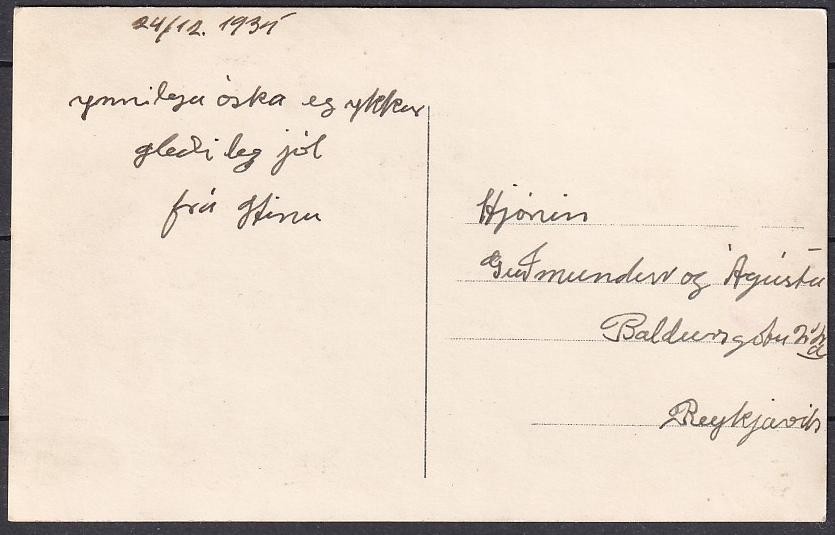 24/12. 1931
ynnilega óska eg ykkur
gleðileg jól
frá Stínu
Hjónin
Guðmundur og Ágústa
Baldursgötu
Reykjavik